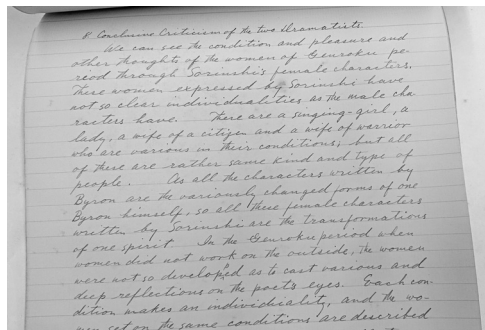 8. Conclusive Criticism of the two Dramatists.
We can see the condition and pleasure and
other thoughts of the women of Genroku pe-
reod through Sorinshi's female characters,
These women expressed by Sorinshi have
not so clear individualities as the male cha
racters have. There are a singing-girl, a
lady, a wife of a citizen and a wife of warrior
who are various in their conditions; but all
of these are rather same kind and type of
people. As all the characters written by
Byron are the variously changed forms of one
Byron himself, so all these female characters
written by Sorinshi are the transformations
of one spirit. In the Genroku period when
women did not work on the outside, the women
were not so developed as to cast various and
deep reflections on the poet's eyes. Each con-
dition makes an individuality, and the wo-
men set on the same conditions are described